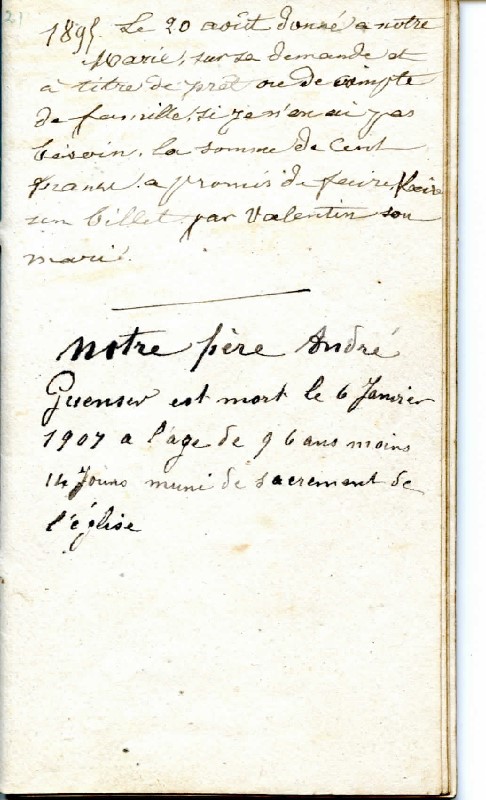 21
1895. Le 20 août donné a notre
Marie, sur sa demande et
à titre de prêt ou de compte
de famille, si je n'en ai pas
besoin, la somme de Cent
francs. a promis de faire faire
un billet par Valentin son
mari.
Notre père André
Guenser est mort le 6 Janvier
1907 a l'age de 96 ans moins
14 Jours muni de sacrement de
l'église